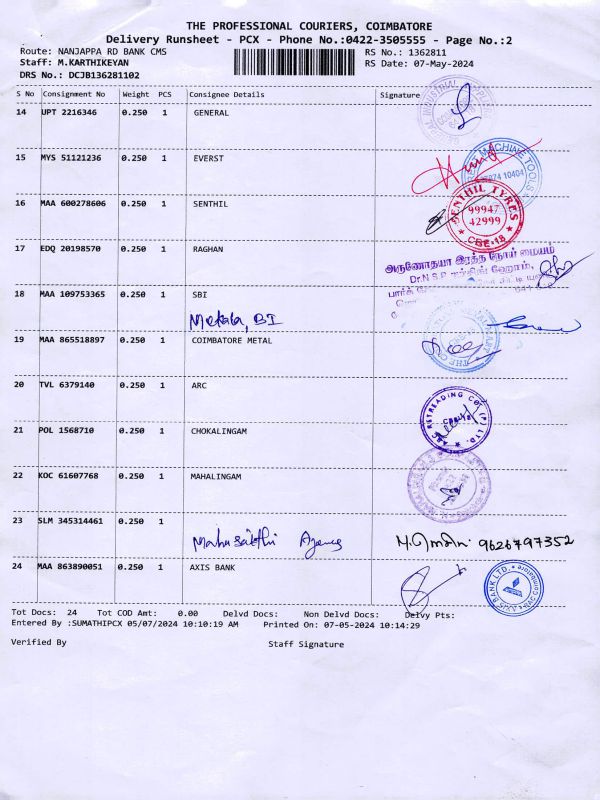 THE PROFESSIONAL COURIERS, COIMBATORE
Delivery Runsheet - PCX - Phone No.:0422-3505555 - Page No.:2
Route: NANJAPPA RD BANK CMS RS No.: 1362811
Staff: M.KARTHIKEYAN RS Date: 07-May-2024
DRS No.: DCJB136281102
S No Consignment No Weight PCS Consignee Details Signature
14 UPT 2216346 0.250 1 GENERAL
15 MYS 51121236 0.250 1 EVERST
MACHINE TOOLS
10404
16 MAA 600278606 0.250 1 SENTHIL
SENTHIL TYRES
99947
42999
CBE-18
17 EDQ 20198570 0.250 1 RAGHAN
அருணோதயா இரத்த நோய் மையம்
Dr.N.S.P.
18 MAA 109753365 0.250 1 SBI
19 MAA 865518897 0.250 1 COIMBATORE METAL
20 TVL 6379140 0.250 1 ARC
ARC RETREADING CO (P) LTD.
21 POL 1568710 0.250 1 CHOKALINGAM
22 KOC 61607768 0.250 1 MAHALINGAM
23 SLM 345314461 0.250 1
Mahasakthi Agency 9626797352
24 MAA 863890051 0.250 1 AXIS BANK
AXIS BANK LTD.
Tot Docs: 24 Tot COD Amt: 0.00 Delvd Docs: Non Delvd Docs: Delvy Pts:
Entered By :SUMATHIPCX 05/07/2024 10:10:19 AM Printed On: 07-05-2024 10:14:29
Verified By Staff Signature